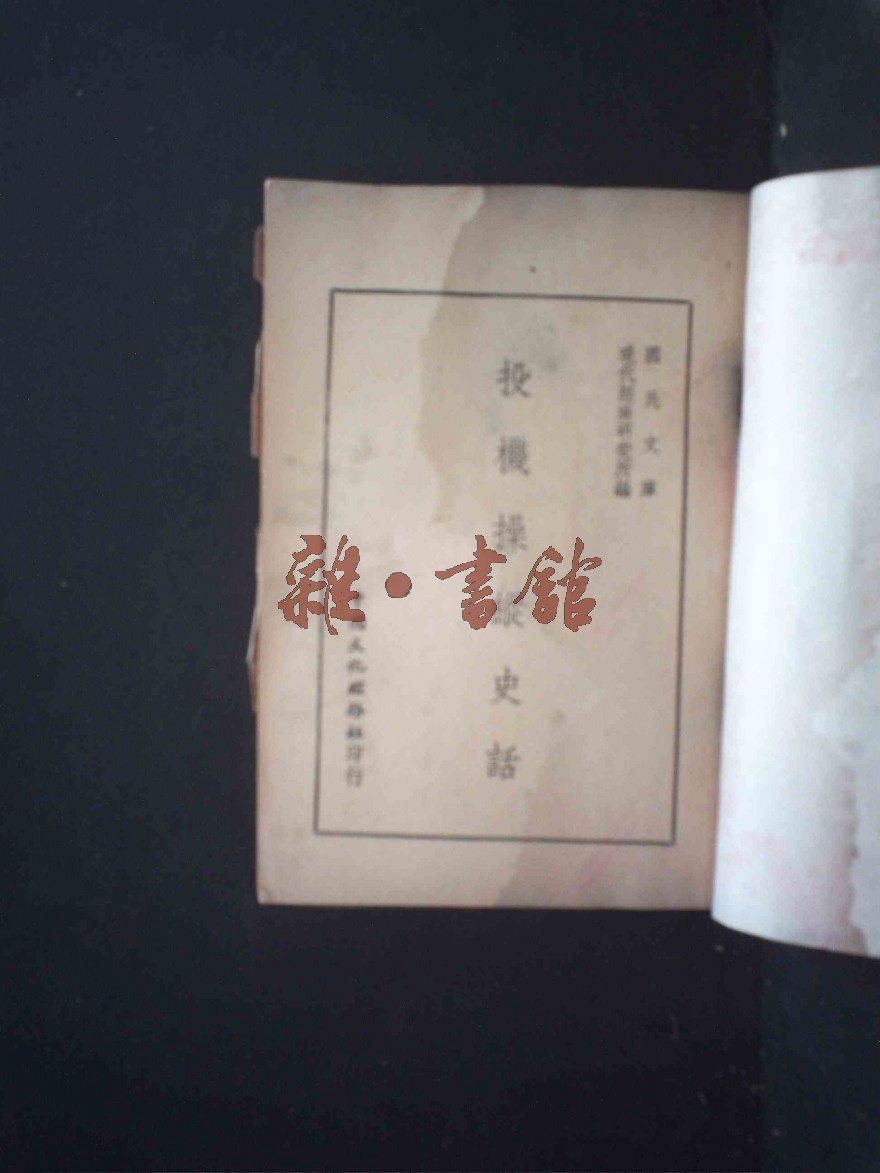 國民文庫
現代經濟研究所編
投機操縱史話
國文化服務社印行
雜·書館